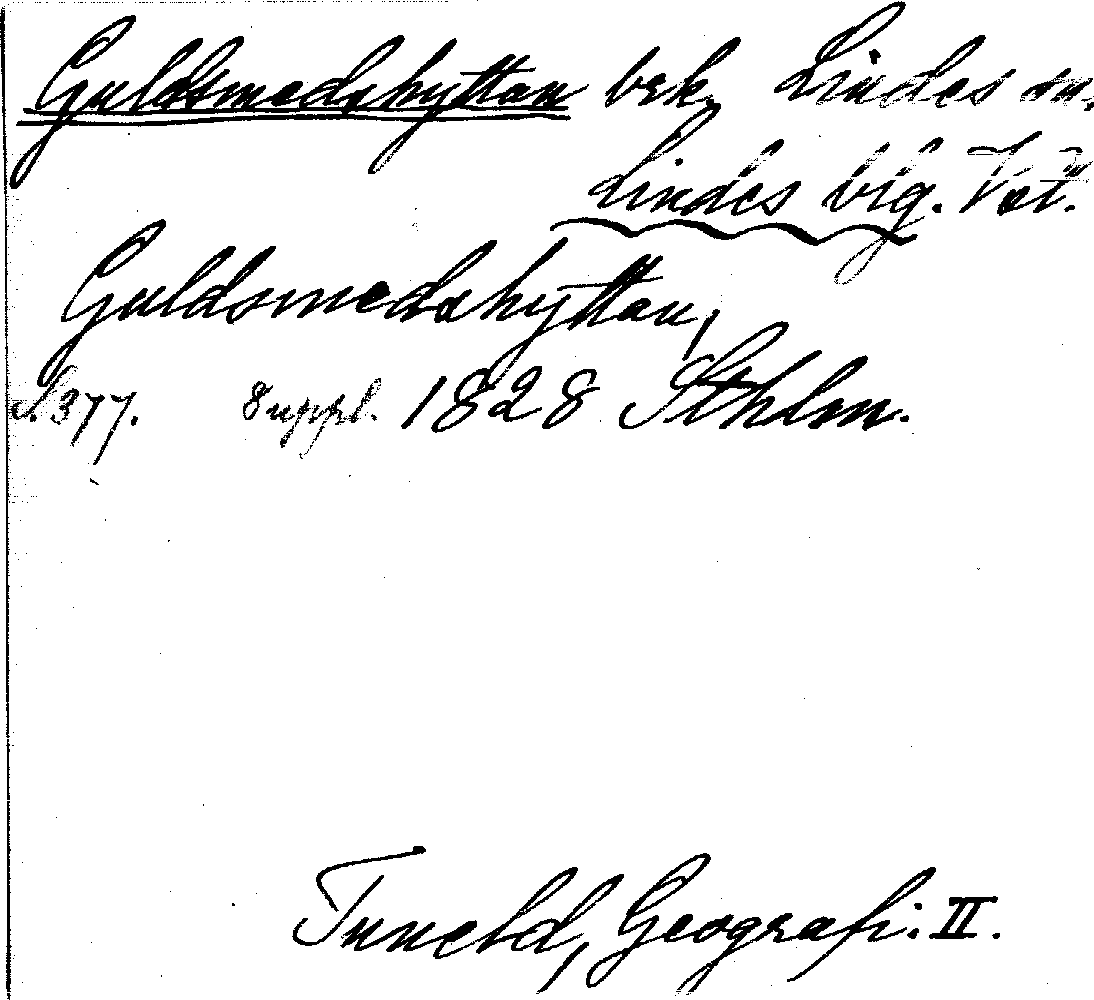 Guldsmedshyttan brk, Lindes sn,
Lindes blg. Vstl.
Guldsmedshyttan,
s. 377. Suppl. 1828 Sthlm.
Tuneld, Geografi. II.